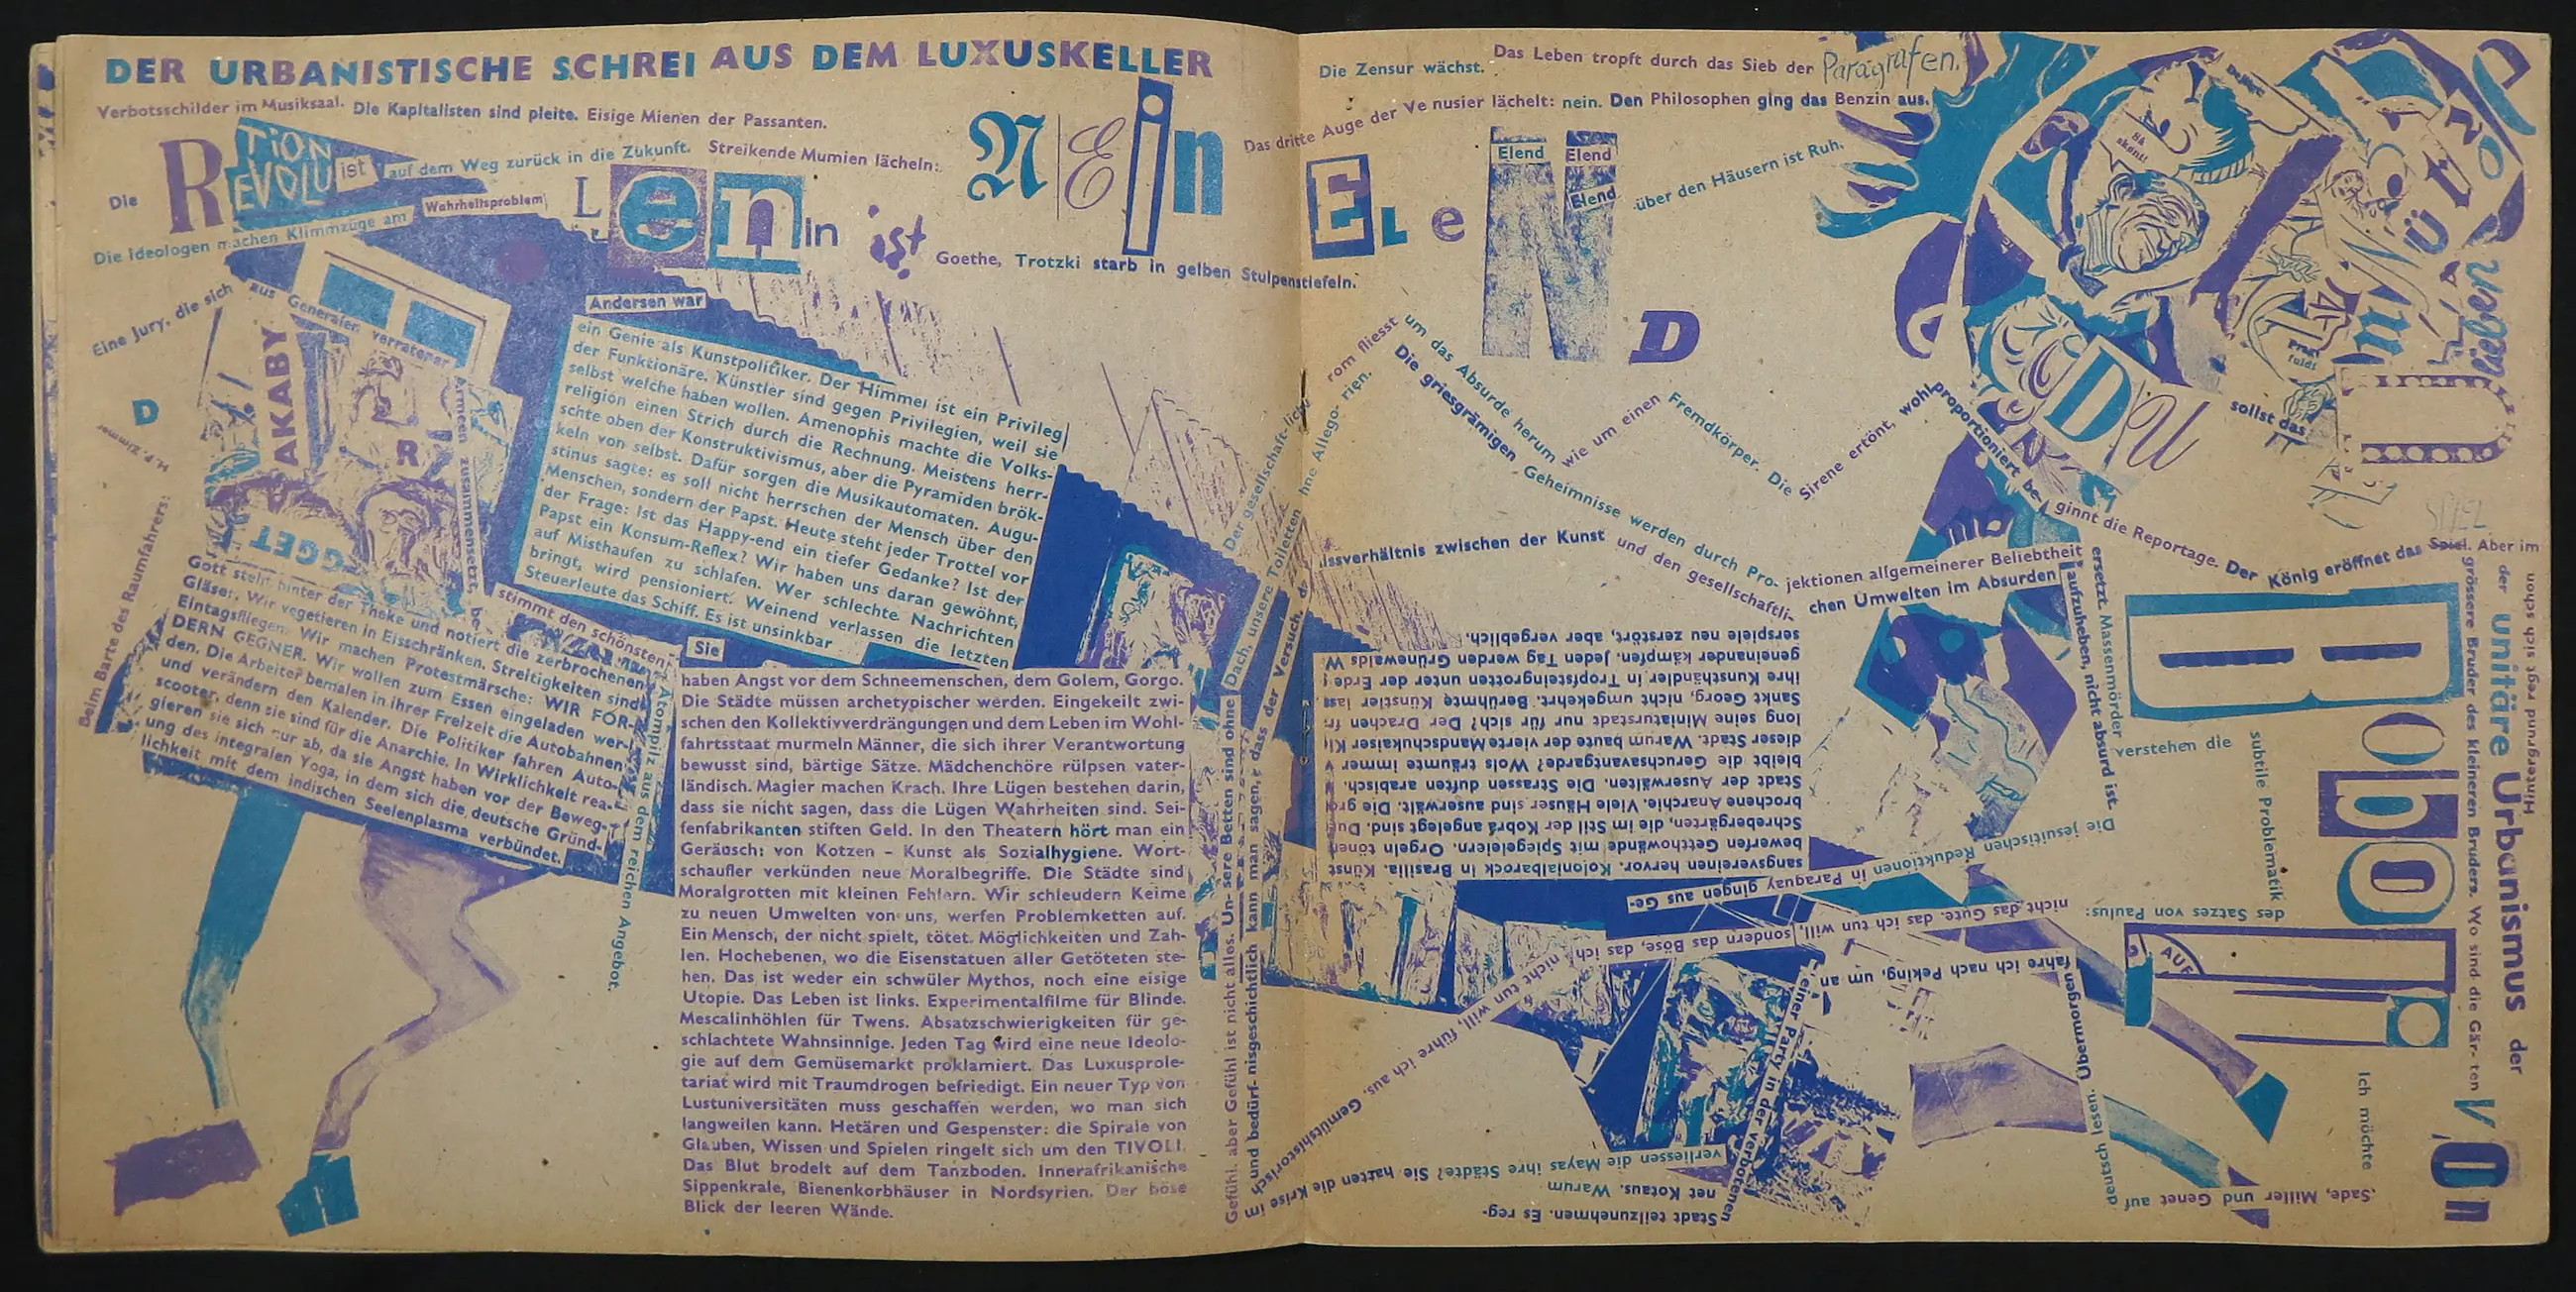 DER URBANISTISCHE SCHREI AUS DEM LUXUSKELLER
Verbotsschilder im Musiksaal. Die Kapitalisten sind pleite. Eisige Mienen der Passanten.
Die REVOLUTiON ist auf dem Weg zurück in die Zukunft. Streikende Mumien lächeln:
NEin
Die Ideologen machen Klimmzüge am Wahrheitsproblem
Lenin ist Goethe, Trotzki starb in gelben Stulpenstiefeln.
Eine Jury, die sich aus Generälen verratener
Armeen zusammensetzt, be-
stimmt den schönsten
Atompilz aus dem reichen Angebot.
AKABY
R
GGET
D
H.P. Zimmer
Beim Barte des Raumfahrers:
Gott steht hinter der Theke und notiert die zerbrochenen
Gläser. Wir vegetieren in Eisschränken. Streitigkeiten sind
Eintagsfliegen. Wir machen Protestmärsche: WIR FOR-
DERN GEGNER. Wir wollen zum Essen eingeladen wer-
den. Die Arbeiter bemalen in ihrer Freizeit die Autobahnen
und verändern den Kalender. Die Politiker fahren Auto-
scooter, denn sie sind für die Anarchie. In Wirklichkeit rea-
gieren sie sich nur ab, da sie Angst haben vor der Beweg-
ung des integralen Yoga, in dem sich die deutsche Gründ-
lichkeit mit dem indischen Seelenplasma verbündet.
Andersen war
ein Genie als Kunstpolitiker. Der Himmel ist ein Privileg
der Funktionäre. Künstler sind gegen Privilegien, weil sie
selbst welche haben wollen. Amenophis machte die Volks-
religion einen Strich durch die Rechnung. Meistens herr-
schte oben der Konstruktivismus, aber die Pyramiden brök-
keln von selbst. Dafür sorgen die Musikautomaten. Augu-
stinus sagte: es soll nicht herrschen der Mensch über den
Menschen, sondern der Papst. Heute steht jeder Trottel vor
der Frage: Ist das Happy-end ein tiefer Gedanke? Ist der
Papst ein Konsum-Reflex? Wir haben uns daran gewöhnt,
auf Misthaufen zu schlafen. Wer schlechte Nachrichten
bringt, wird pensioniert. Weinend verlassen die letzten
Steuerleute das Schiff. Es ist unsinkbar
Sie
haben Angst vor dem Schneemenschen, dem Golem, Gorgo.
Die Städte müssen archetypischer werden. Eingekeilt zwi-
schen den Kollektivverdrängungen und dem Leben im Wohl-
fahrtsstaat murmeln Männer, die sich ihrer Verantwortung
bewusst sind, bärtige Sätze. Mädchenchöre rülpsen vater-
ländisch. Magier machen Krach. Ihre Lügen bestehen darin,
dass sie nicht sagen, dass die Lügen Wahrheiten sind. Sei-
fenfabrikanten stiften Geld. In den Theatern hört man ein
Geräusch: von Kotzen – Kunst als Sozialhygiene. Wort-
schaufler verkünden neue Moralbegriffe. Die Städte sind
Moralgrotten mit kleinen Fehlern. Wir schleudern Keime
zu neuen Umwelten von uns, werfen Problemketten auf.
Ein Mensch, der nicht spielt, tötet. Möglichkeiten und Zah-
len. Hochebenen, wo die Eisenstatuen aller Getöteten ste-
hen. Das ist weder ein schwüler Mythos, noch eine eisige
Utopie. Das Leben ist links. Experimentalfilme für Blinde.
Mescalinhöhlen für Twens. Absatzschwierigkeiten für ge-
schlachtete Wahnsinnige. Jeden Tag wird eine neue Ideolo-
gie auf dem Gemüsemarkt proklamiert. Das Luxusprole-
tariat wird mit Traumdrogen befriedigt. Ein neuer Typ von
Lustuniversitäten muss geschaffen werden, wo man sich
langweilen kann. Hetären und Gespenster: die Spirale von
Glauben, Wissen und Spielen ringelt sich um den TIVOLI.
Das Blut brodelt auf dem Tanzboden. Innerafrikanische
Sippenkrale, Bienenkorbhäuser in Nordsyrien. Der böse
Blick der leeren Wände.
Gefühl. aber Gefühl ist nicht alles. Un- sere Betten sind ohne Dach, unsere Toiletten hne Allego- rien.
Der gesellschaft-liche rom fliesst um das Absurde herum wie um einen Fremdkörper. Die Sirene ertönt, wohl proportioniert be- ginnt die Reportage. Der König eröffnet das Spiel. Aber im
Hintergrund regt sich schon
der unitäre Urbanismus der
grössere Bruder des kleineren Bruders. Wo sind die Gär- ten von
Die Zensur wächst. Das Leben tropft durch das Sieb der Paragrafen.
Das dritte Auge der Ve nusier lächelt: nein. Den Philosophen ging das Benzin aus.
ELeND
Elend Elend
Elend
über den Häusern ist Ruh.
Så skønt!
DU sollst das
Die griesgrämigen Geheimnisse werden durch Pro- jektionen allgemeinerer Beliebtheit
ersetzt. Massenmörder
verstehen die
subtile Problematik
des Satzes von Paulus:
nicht das Gute, das ich tun will, sondern das Böse, das ich nicht tun will, führe ich aus. Gemütshistorisch
und bedürf- nisgeschichtlich kann man sagen, dass der Versuch, d
issverhältnis zwischen der Kunst und den gesellschaftli-
chen Umwelten im Absurden
aufzuheben, nicht absurd ist.
Die jesuitischen Reduktionen in Paraguay gingen aus Ge-
sangsvereinen hervor. Kolonialbarock in Brasilia. Künst
bewerfen Gettowände mit Spiegeleiern. Orgeln tönen
Schrebergärten, die im Stil der Kobra angelegt sind. Du
brochene Anarchie. Viele Häuser sind auserwält. Die gr
Stadt der Auserwälten. Die Strassen duften arabisch.
bleibt die Geruchsavantgarde? Wols träumte immer
dieser Stadt. Warum baute der vierte Mandschukaiser Ki
long seine Miniaturstadt nur für sich? Der Drachen fr
Sankt Georg, nicht umgekehrt. Berühmte Künstler lass
ihre Kunsthändler in Tropfsteingrotten unter der Erde
geneinander kämpfen. Jeden Tag werden Grünewalds W
serspiele neu zerstört, aber vergeblich.
BoboliR
AUF
Ich möchte
Sade, Miller und Genet auf
deutsch lesen. Übermorgen
fahre ich nach Peking, um an
einer Party in der verbotenen
Stadt teilzunehmen. Es reg-
net Kotaus. Warum
verliessen die Mayas ihre Städte? Sie hatten die Krise im